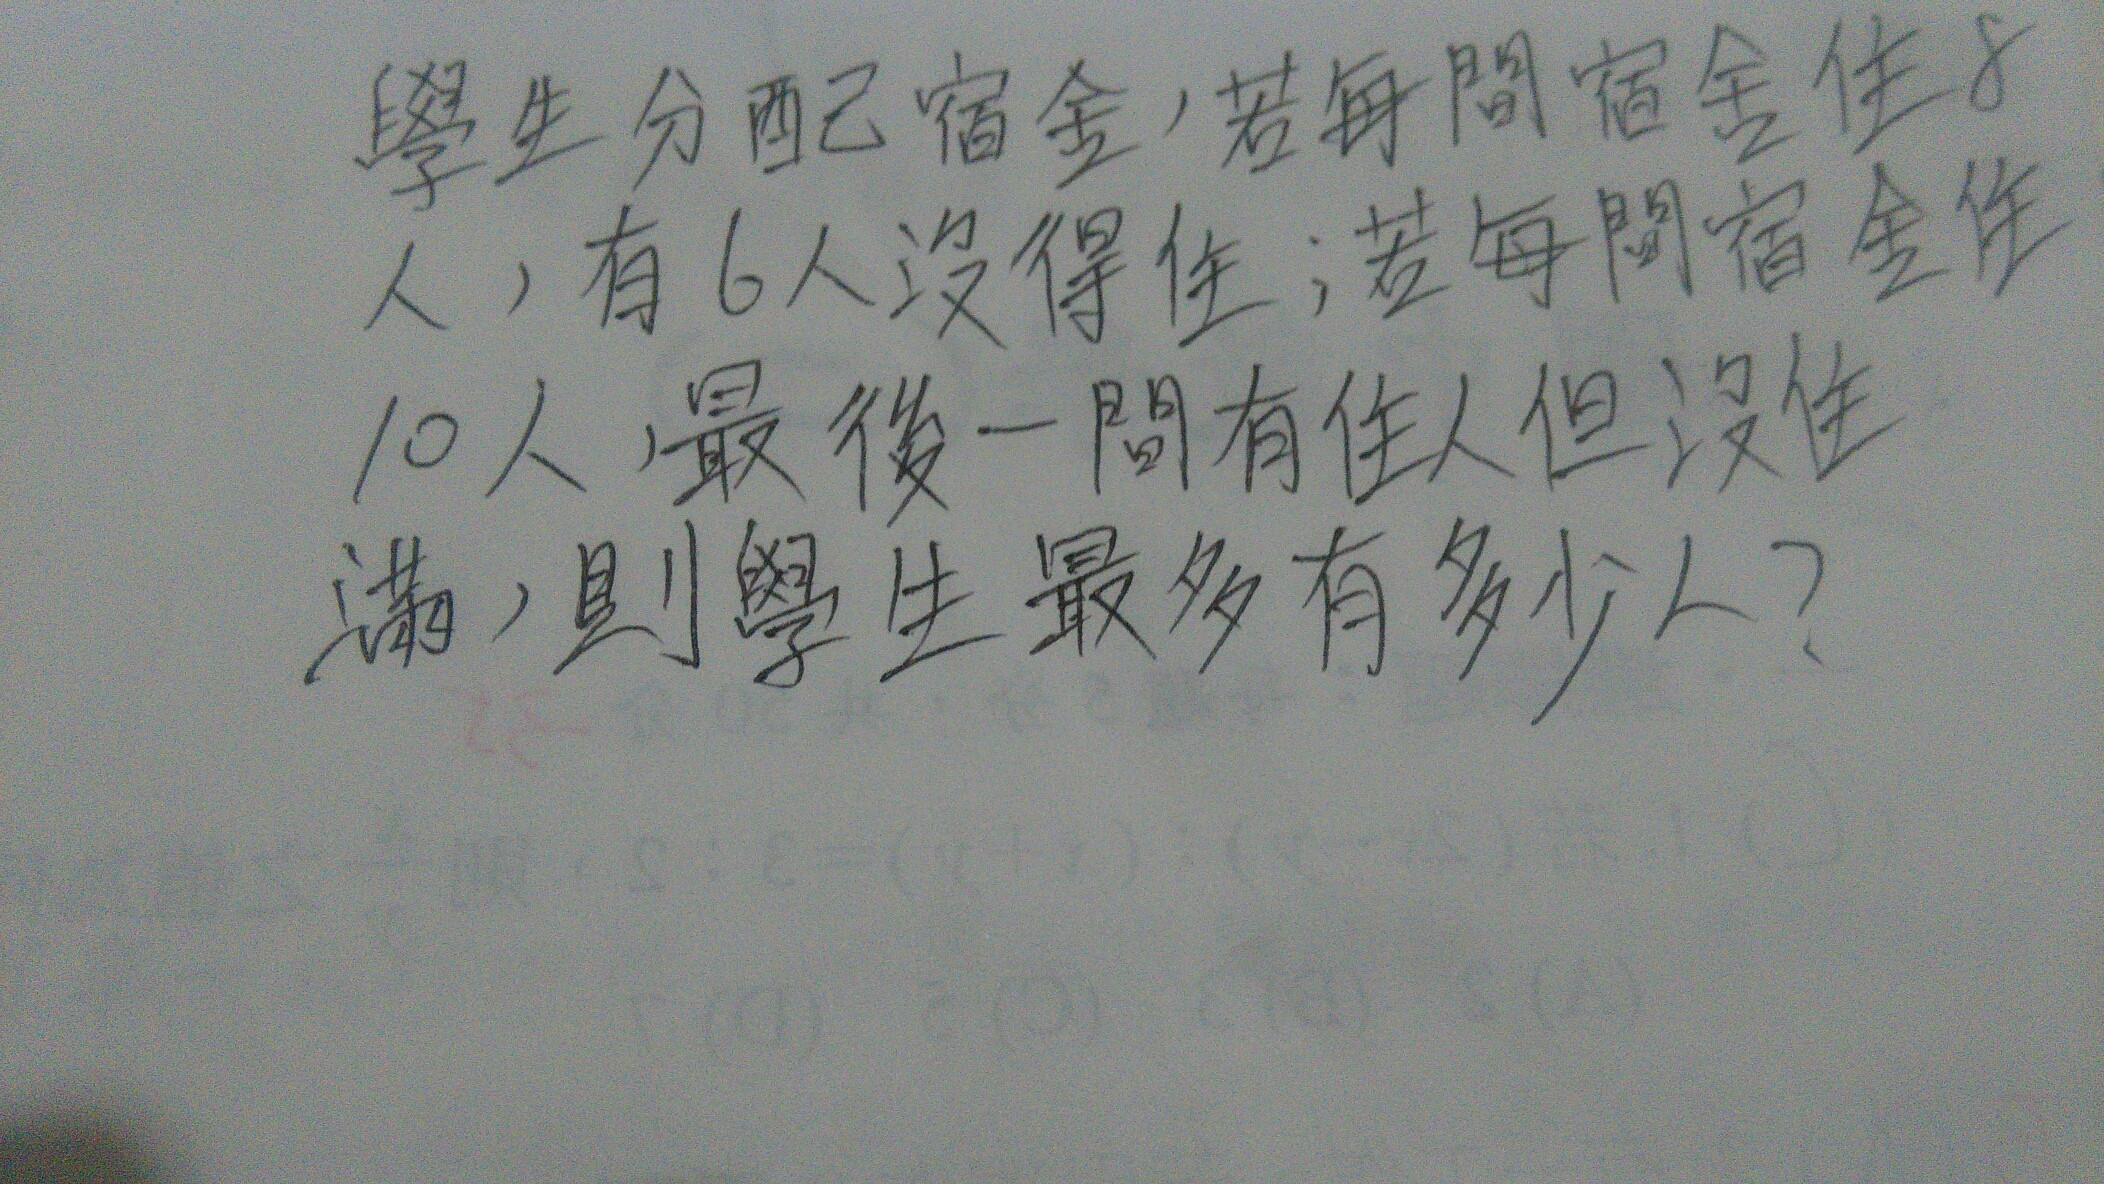 學生分配宿舍,若每間宿舍住8
人,有6人沒得住;若每間宿舍住
10人,最後一間有住人但沒住
滿,則學生最多有多少人?